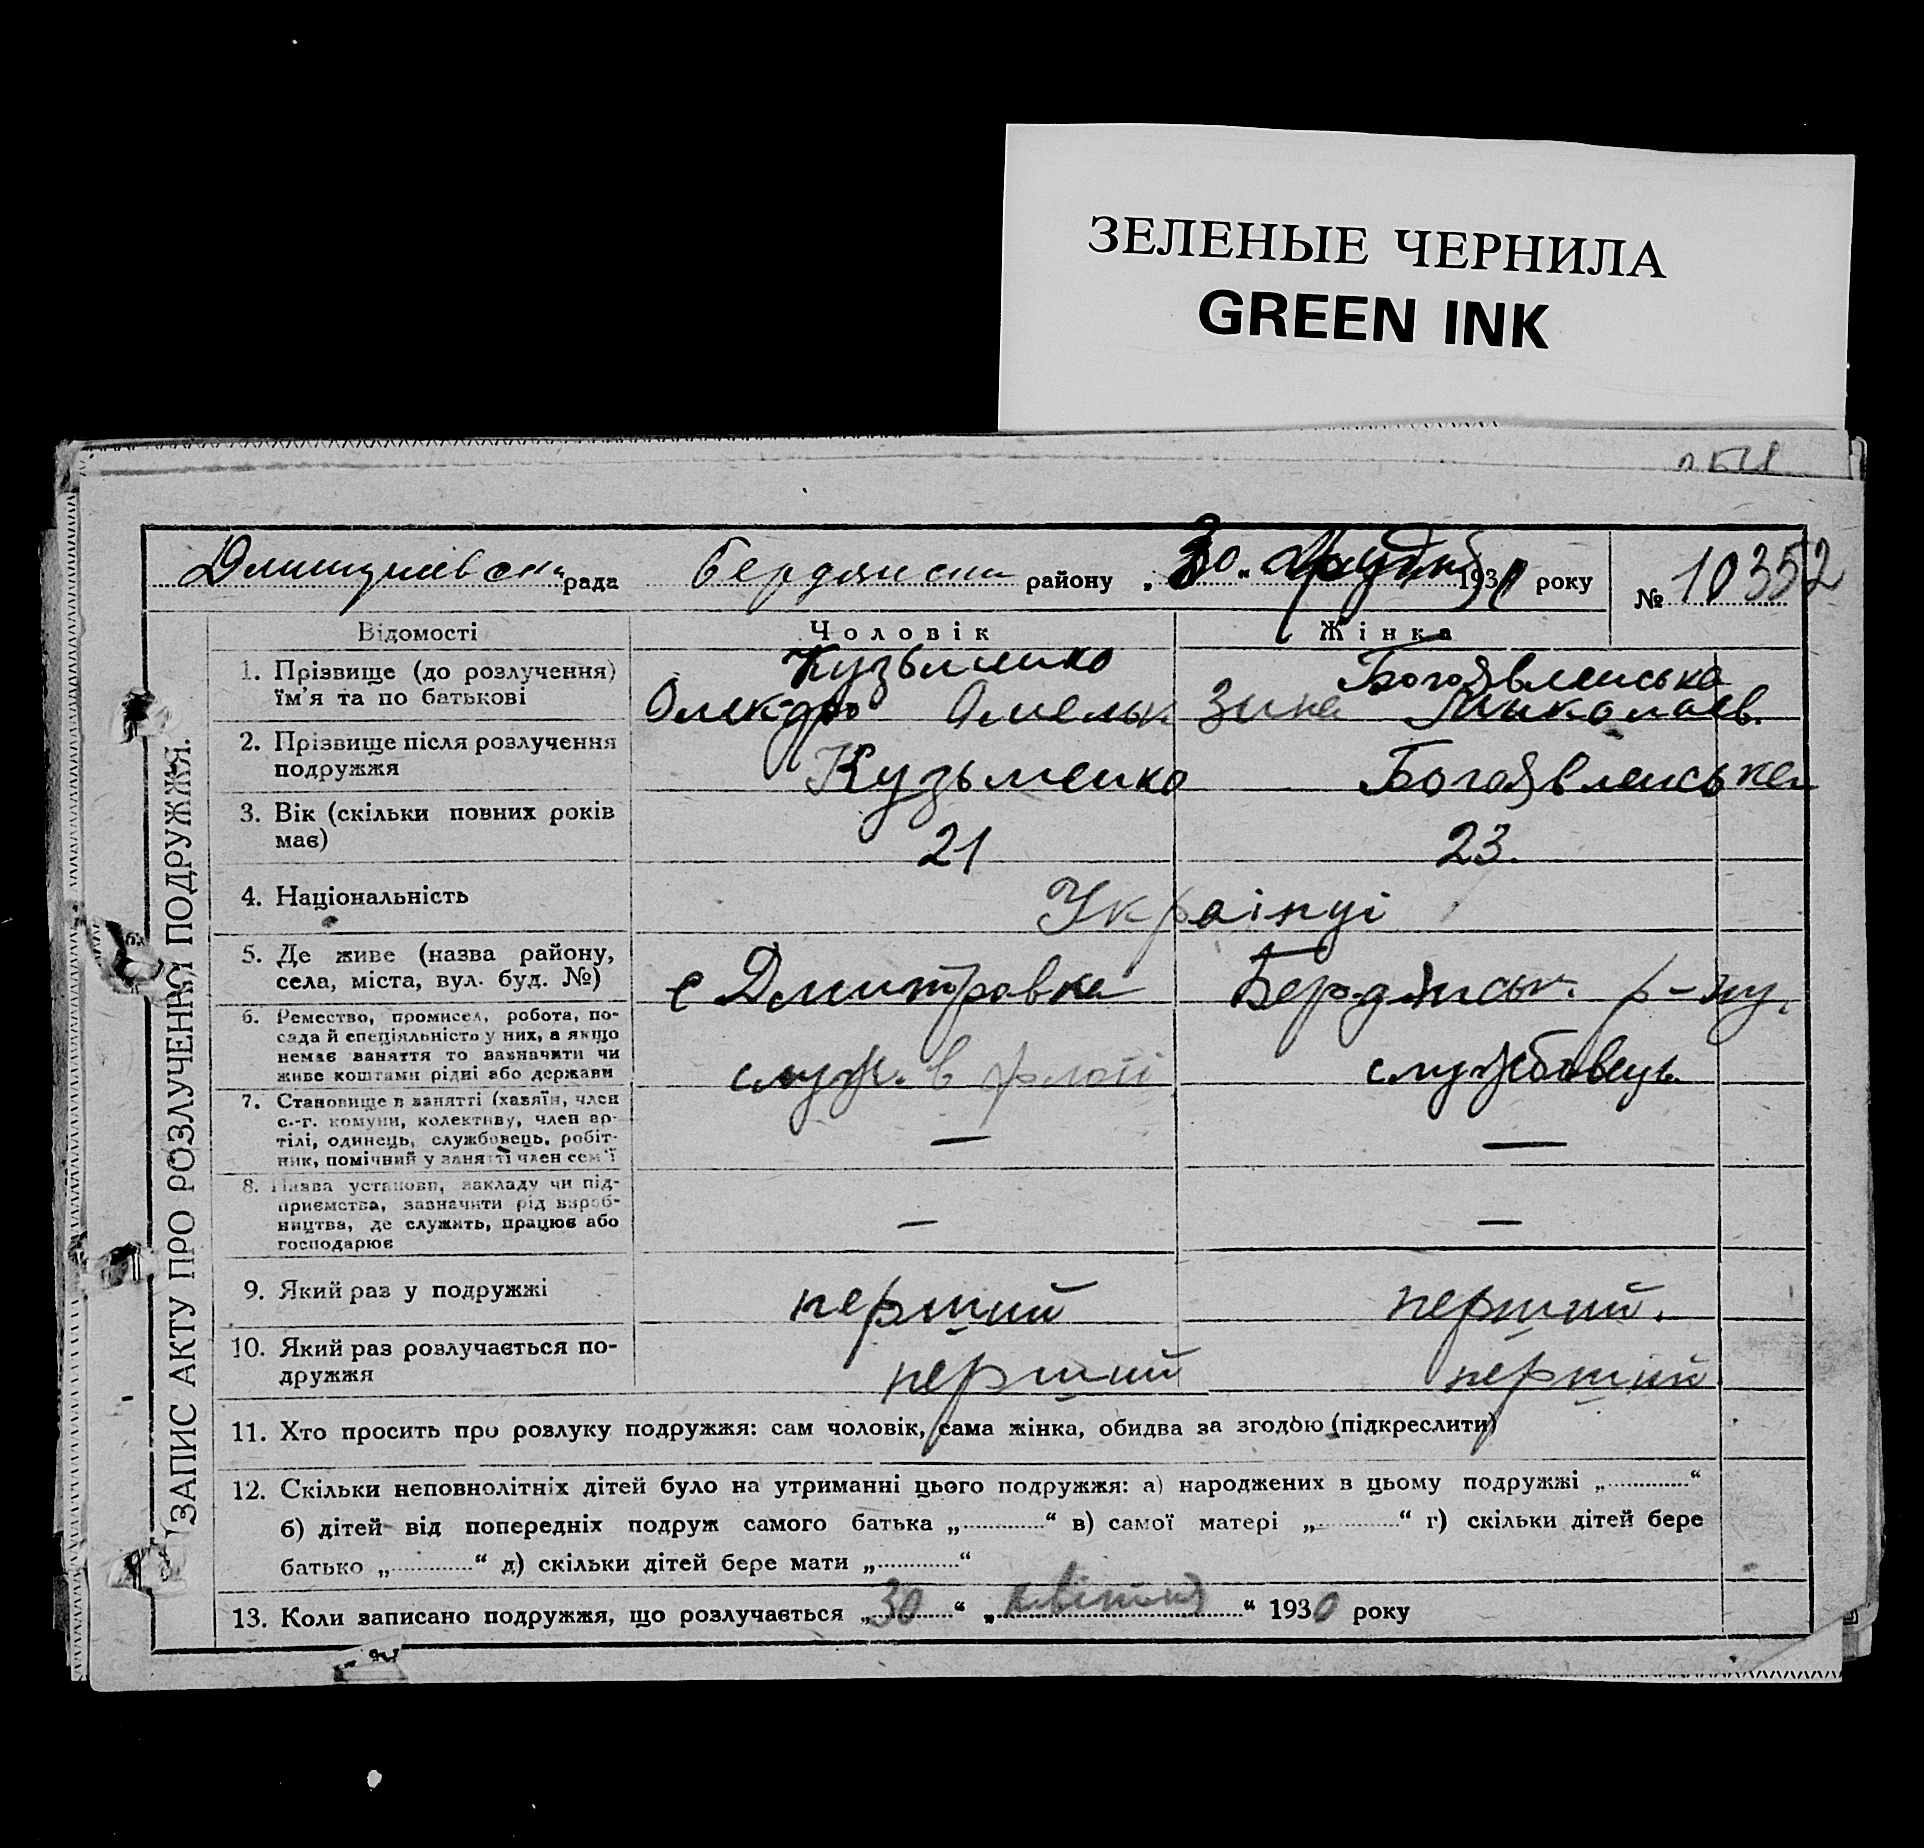 ЗЕЛЕНЫЕ ЧЕРНИЛА
GREEN INK
рада Бердянськ району „30“ Грудня 193 року № 10352
ЗАПИС АКТУ ПРО РОЗЛУЧЕННЯ ПОДРУЖЖЯ.
Відомості Чоловік Жінка
1. Прізвище (до розлучення) Кузьменко Богоявленська
їм'я та по батькові Олекдр Омельк Зина Миколаєв.
2. Прізвище після розлучення
подружжя Кузьменко Богоявленська
3. Вік (скільки повних років
має) 21 23.
4. Національність Українці
5. Де живе (назва району,
села, міста, вул. буд. №) с Дмитровка Бердянськ. р-ну.
6. Ремество, промисел, робота, по-
сада й спеціяльність у них, а якщо
немає заняття то зазначити чи
живе коштами рідні або держави служ. в флоті службовець.
7. Становище в занятті (хазяїн, член
с.-г. комуни, колективу, член ар-
тілі, одинець, службовець, робіт-
ник, помічний у занятті член сем'ї — —
8. Назва установи, закладу чи під-
приємства, зазначити рід вироб-
ництва, де служить, працює або
господарює — —
9. Який раз у подружжі перший перший.
10. Який раз розлучається по-
дружжя перший перший
11. Хто просить про розлуку подружжя: сам чоловік, сама жінка, обидва за згодою (підкреслити)
12. Скільки неповнолітніх дітей було на утриманні цього подружжя: а) народжених в цьому подружжі „..............“
б) дітей від попередніх подруж самого батька „..............“ в) самої матері „..............“ г) скільки дітей бере
батько „..............“ д) скільки дітей бере мати „..............“
13. Коли записано подружжя, що розлучається „30“ „квітня“ 1930 року